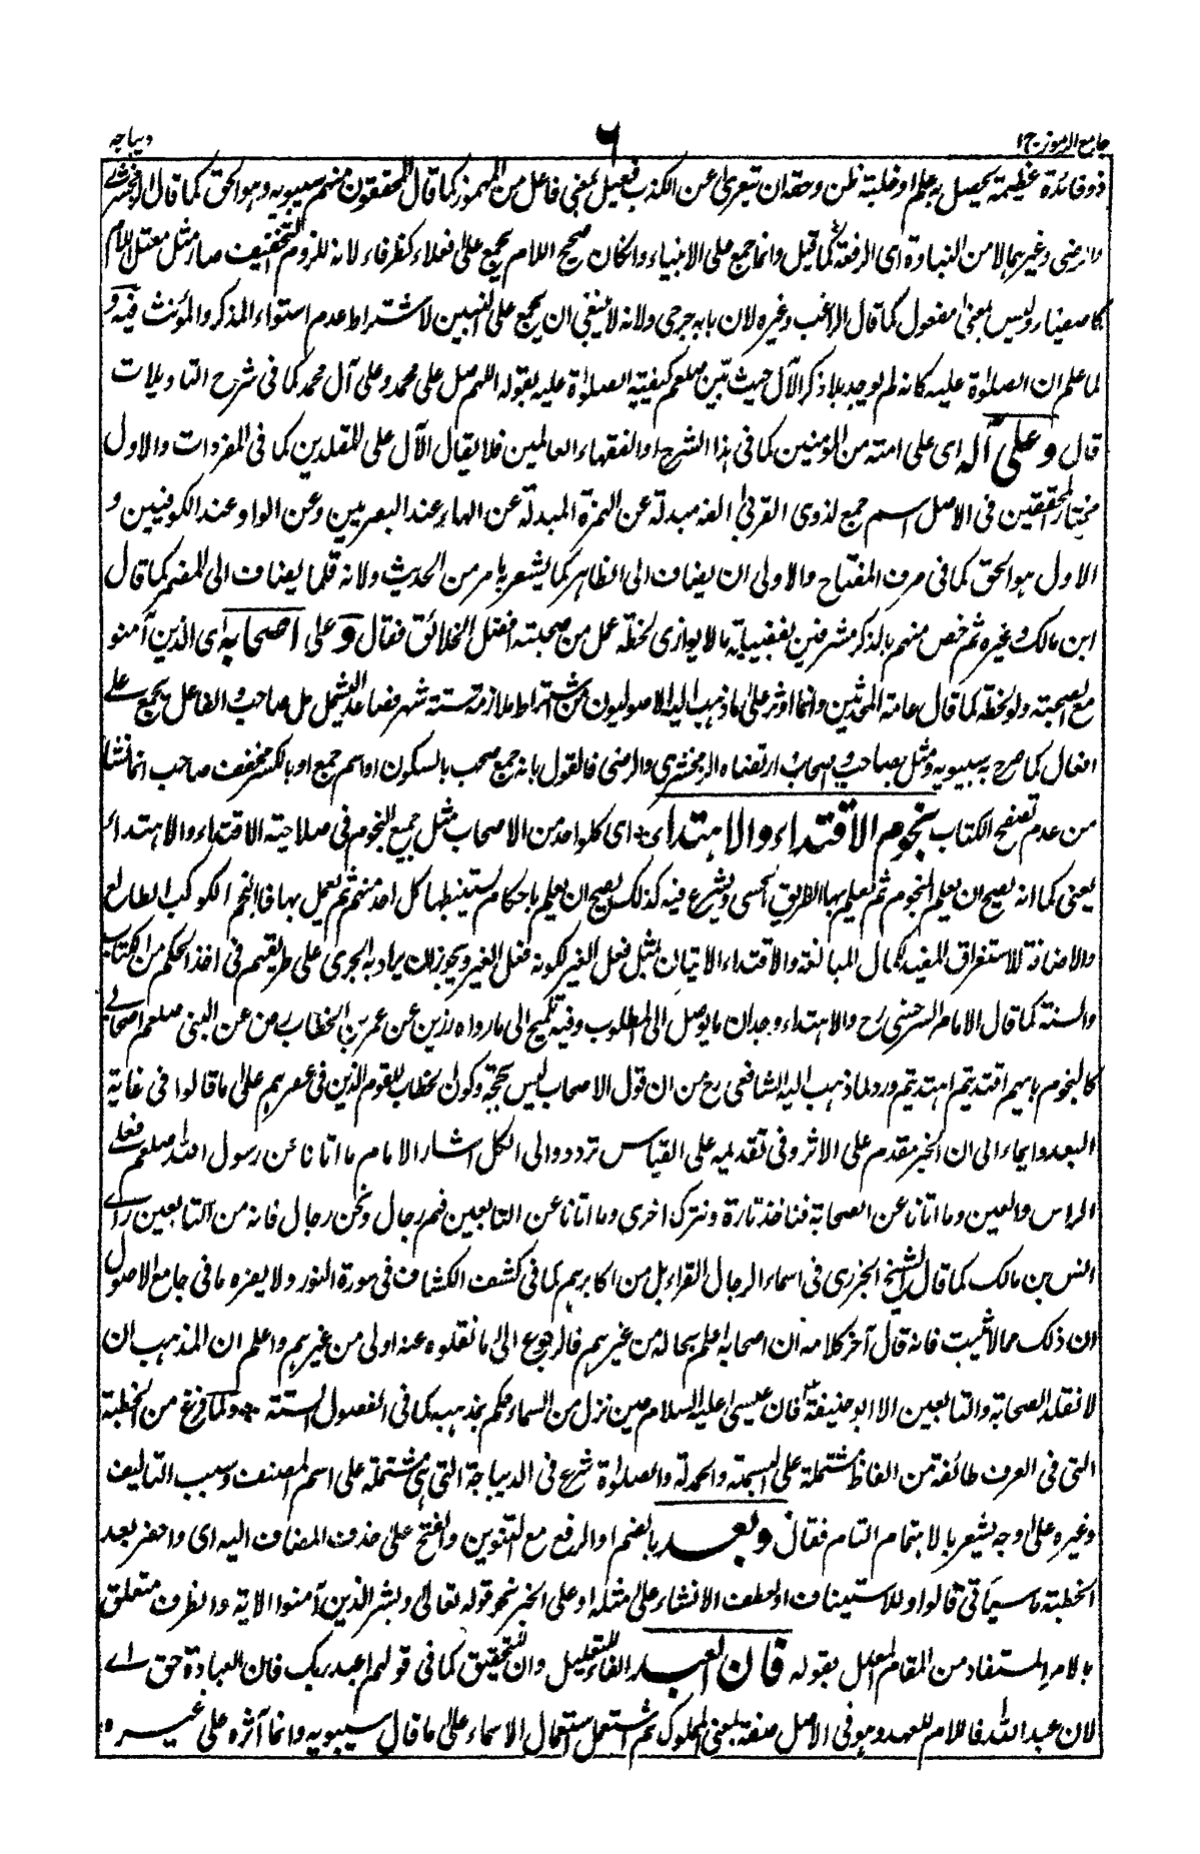 جامع الرموز ج۱ ٦ دیباجه
ذو فائدة عظيمة يحصل به علم او غلبة ظن وحقه ان يتعرى عن الكذب فعيل بمعنى فاعل من المهموز كما قال المحققون منهم سيبويه وهو الحق كما قال الزمخشرى
والرضى وغيرهما لا من النباوة اى الرفعة كما قيل وانما جمع على الانبياء وان كان صحيح اللام يجمع على فعلاء كظرفاء لانه للزوم التخفيف صار مثل معتل اللام
كاصفياء وليس بمعنى مفعول كما قال الراغب وغيره لان بابه جرحى ولانه لا ينبغى ان يجمع على النبيين لاشتراط عدم استواء المذكر والمؤنث فيه و
لما علم ان الصلوة عليه كانه لم يوجد بلا ذكر الآل حيث تبين صلعم كيفية الصلوة عليه بقوله اللهم صل على محمد وعلى آل محمد كما فى شرح التاويلات
قال وعلى آله اى على امته من المؤمنين كما فى هذا الشرح او الفقهاء العالمين فلا يقال الآل على المقلدين كما فى المفردات والاول
مختار المحققين فى الاصل اسم جمع لذوى القربى الفه مبدلة عن الهمزة المبدلة عن الهاء عند البصريين وعن الواو عند الكوفيين و
الاول هو الحق كما فى صرف المفتاح والاولى ان يضاف الى الظاهر كما يشعر بامر من الحديث ولانه قلما يضاف الى المضمر كما قال
ابن مالك وغيره ثم خص منهم بالذكر مشرفين بفضيلة ما لا يوازى لحظة عمل من صحبته افضل الخلائق فقال وعلى اصحابه اى الذين آمنوا
مع الصحبة ولو لحظة كما قال عامة المحدثين وانما اوثر على ما ذهب اليه الاصوليون من اشتراط ملازمة ستة شهر فصاعدا ليشمل كل صاحب والفاعل يجمع على
افعال كما صرح به سيبويه ومثل بصاحب واصحاب وارتضاه الزمخشرى والرضى فالقول بانه جمع صحب بالسكون او اسم جمع او بالكسر مخفف صاحب انما نشا
من عدم تصفح الكتاب بنجوم الاقتداء والاهتداء اى كل واحد من الاصحاب مثل جميع النجوم فى صلاحية الاقتداء والاهتداء
يعنى كما انه يصيح ان يعلم النجوم ثم يعلم بها الطريق الحسى ويشرع فيه كذلك يصيح ان يعلم باحكام يستنبطها كل احد منهم ثم يعمل بها فالنجم الكوكب الطالع
والاضافة للاستغراق المفيد لكمال المبالغة والاقتداء الاتيان بمثل فعل الغير لكونه فعل الغير ويجوز ان يراد به الجرى على طريقهم فى اخذ الحكم من الكتاب
والسنة كما قال الامام السرخسى رح والاهتداء وجدان ما يوصل الى المطلوب وفيه تلميح الى ما رواه رزين عن عمر بن الخطاب رض عن النبى صلعم اصحابى
كالنجوم بايهم اقتديتم اهتديتم ورد لما ذهب اليه الشافعى رح من ان قول الاصحاب ليس بحجة وكون الخطاب للقوم الذين فى عصرهم على ما قالوا فى غاية
البعد وايماء الى ان الخبر مقدم على الاثر وفى تقديمه على القياس تردد والى الكل اشار الامام ما اتانا عن رسول الله صلعم فعلى
الراس والعين وما اتانا عن الصحابة فناخذ تارة ونترك اخرى وما اتانا عن التابعين فهم رجال ونحن رجال فانه من التابعين راى
انس بن مالك كما قال الشيخ الجزرى فى اسماء الرجال القراء بل من اكابرهم كما فى كشف الكشاف فى سورة النور ولا يضره ما فى جامع الاصول
ان ذلك مما لا يثبت فانه قال آخر كلامه ان اصحابه اعلم بحاله من غيرهم فالرجوع الى ما نقلوه عنه اولى من غيرهم واعلم ان المذهب ان
لا نقلد الصحابة والتابعين الا ابو حنيفة فان عيسى عليه السلام حين نزل من السماء حكم بمذهبه كما فى الفصول الستة ٭ ولما فرغ من الخطبة
التى فى العرف طائفة من الفاظ مشتملة على البسملة والحمدلة والصلوة شرع فى الديباجة التى هى مشتملة على اسم المصنف وسبب التاليف
وغيره على وجه يشعر بالاهتمام التام فقال وبعد بالضم او الرفع مع التنوين والفتح على حذف المضاف اليه اى واحضر بعد
الخطبة ما سياتى قالوا وللاستيناف او لعطف الانشاء على مثله او على الخبر نحو قوله تعالى وبشر الذين آمنوا الاية والظرف متعلق
بالامر المستفاد من المقام المعلل بقوله فان العبد الفاء للتعليل وان للتحقيق كما فى قولهم اعبد ربك فان العبادة حق اے
لان عبد الله فاللام للعهد وهو فى الاصل صفة بمعنى المملوك ثم استعمل استعمال الاسماء على ما قال سيبويه وانما آثره على غيره